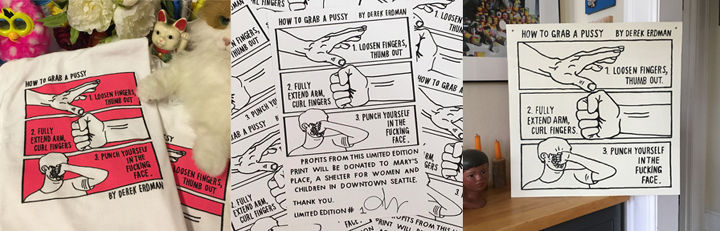 HOW TO GRAB A PUSSY
1. LOOSEN FINGERS,
THUMB OUT
2. FULLY
EXTEND ARM,
CURL FINGERS
3. PUNCH YOURSELF
IN THE
FUCKING
FACE.
BY DEREK ERDMAN
LOOSEN FINGERS,
THUMB OUT
HOW TO GRAB A PUSSY BY DEREK ERDMAN
1. LOOSEN FINGERS,
THUMB OUT.
2. FULLY
EXTEND ARM,
CURL FINGERS
3. PUNCH YOURSELF
IN THE
FUCKING
FACE.
PROFITS FROM THIS LIMITED EDITION
PRINT WILL BE DONATED TO MARY'S
PLACE, A SHELTER FOR WOMEN AND
CHILDREN IN DOWNTOWN SEATTLE.
THANK YOU.
LIMITED EDITION # 1
HOW TO GRAB A PUSSY BY DEREK ERDMAN
1. LOOSEN FINGERS,
THUMB OUT.
2. FULLY
EXTEND ARM,
CURL FINGERS
3. PUNCH YOURSELF
IN THE
FUCKING
FACE.